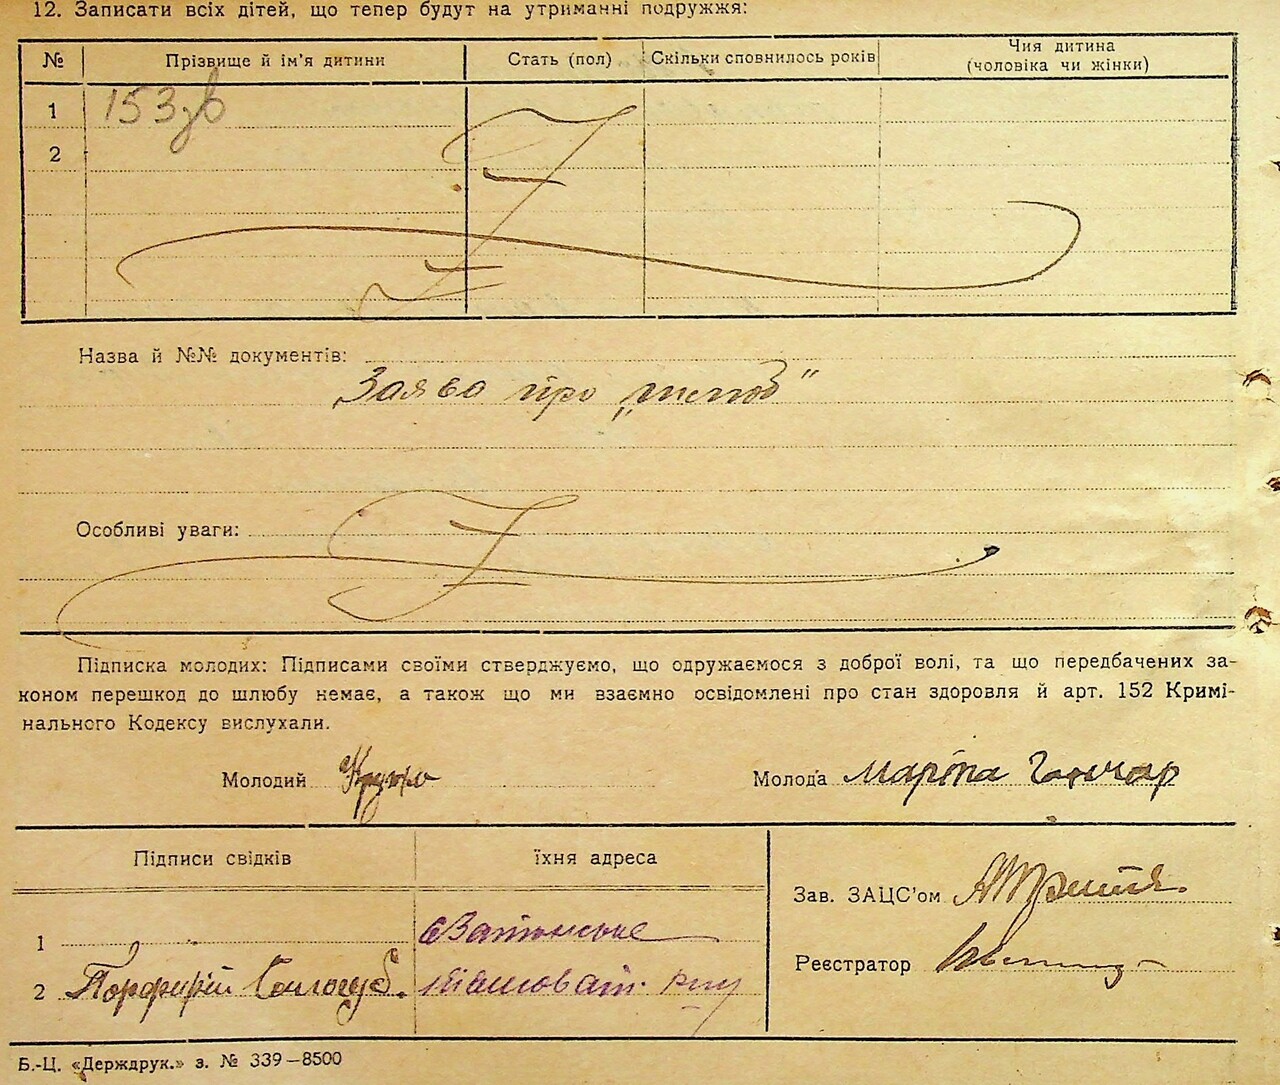 12. Записати всіх дітей, що тепер будут на утриманні подружжя:
№ Прізвище й ім'я дитини Стать (пол) Скільки сповнилось років Чия дитина
(чоловіка чи жінки)
1 153зв
2
Назва й №№ документів:
Заява про „шлюб“
Особливі уваги:
Підписка молодих: Підписами своїми стверджуємо, що одружаємося з доброї волі, та що передбачених за-
коном перешкод до шлюбу немає, а також що ми взаємно освідомлені про стан здоровля й арт. 152 Кримі-
нального Кодексу вислухали.
Молодий Молода Маріпа Гончар
Підписи свідків їхня адреса
Зав. ЗАЦС'ом
1
Реєстратор
2 Порфирій
Б.-Ц. «Держдрук.» з. № 339—8500